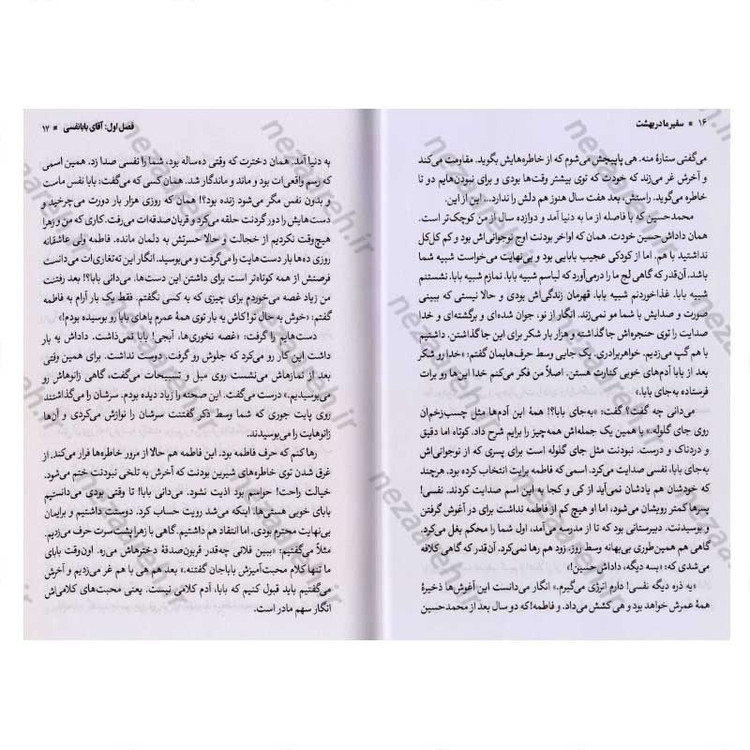 ۱۶ ■ سفیر ما در بهشت
می‌گفتی ستارهٔ منه. هی پاپیچش می‌شوم که از خاطره‌هایش بگوید. مقاومت می‌کند
و آخرش غر می‌زند که خودت که توی بیشتر وقت‌ها بودی و برای نبودن‌هایم دو تا
خاطره می‌گوید. راستش، بعد هفت سال هنوز هم دلش را ندارد... این از این.
محمدحسین که با فاصله از ما به دنیا آمد و دوازده سال از من کوچک‌تر است.
همان داداش‌حسین خودت. همان که اواخر بودنت اوج نوجوانی‌اش بود و کم کل‌کل
نداشتید با هم. اما از کودکی عجیب بابایی بود و بی‌نهایت می‌خواست شبیه شما
باشد. آن‌قدر که گاهی لج ما را درمی‌آورد که لباسم شبیه بابا. نمازم شبیه بابا. نشستنم
شبیه بابا. غذاخوردنم شبیه بابا. قهرمان زندگی‌اش بودی و حالا نیستی که ببینی
صورت و صدایش با شما مو نمی‌زند. انگار از نو، جوان شده‌ای و برگشته‌ای و خدا
صدایت را توی حنجره‌اش جا گذاشته و هزار بار شکر برای این جاگذاشتن. داشتیم
با هم گپ می‌زدیم. خواهربرادری. یک جایی وسط حرف‌هایمان گفتم: «خدا رو شکر
بعد از بابا آدم‌های خوبی کنارت هستن. اصلاً من فکر می‌کنم خدا این‌ها رو برات
فرستاده به‌جای بابا.»
می‌دانی چه گفت؟ گفت: «به‌جای بابا؟! همهٔ این آدم‌ها مثل چسب‌زخم‌ان
روی جای گلوله.» با همین یک جمله‌اش همه‌چیز را برایم شرح داد. کوتاه اما دقیق
و دردناک و درست. نبودنت مثل جای گلوله است برای پسری که از نوجوانی‌اش
به‌جای بابا، نفسی صدایت می‌کرد. اسمی که فاطمه برایت انتخاب کرده بود. هرچند
که خودشان هم یادشان نمی‌آید از کی و کجا به این اسم صدایت کردند. نفسی!
پسرها کمتر رویشان می‌شود، اما او هیچ کم از فاطمه نداشت برای در آغوش گرفتن
و بوسیدنت. دبیرستانی بود که تا از مدرسه می‌آمد، اول شما را محکم بغل می‌کرد.
گاهی هم همین‌طوری بی‌بهانه وسط روز. زود هم رها نمی‌کرد. آن‌قدر که گاهی کلافه
می‌شدی که: «بسه دیگه، داداش‌حسین!»
«یه ذره دیگه نفسی! دارم انرژی می‌گیرم.» انگار می‌دانست این آغوش‌ها ذخیرهٔ
همهٔ عمرش خواهد بود و هی کشش می‌داد. و فاطمه! که دو سال بعد از محمدحسین
فصل اول: آقای بابانفسی ■ ۱۷
به دنیا آمد. همان دخترت که وقتی ده‌ساله بود، شما را نفسی صدا زد. همین اسمی
که رسم واقعی‌ات بود و ماند و ماندگار شد. همان کسی که می‌گفت: بابا نفس ماست
و بدون نفس مگر می‌شود زنده بود؟! همان که روزی هزار بار دورت می‌چرخید و
دست‌هایش را دور گردنت حلقه می‌کرد و قربان‌صدقه‌ات می‌رفت. کاری که من و زهرا
هیچ‌وقت نکردیم از خجالت و حالا حسرتش به دلمان مانده. فاطمه ولی عاشقانه
روزی ده‌ها بار دست‌هایت را می‌گرفت و می‌بوسید. انگار این ته‌تغاری‌ات می‌دانست
فرصتش از همه کوتاه‌تر است برای داشتن این دست‌ها. می‌دانی بابا؟! بعد رفتنت
من زیاد غصه می‌خوردم برای چیزی که به کسی نگفتم. فقط یک بار آرام به فاطمه
گفتم: «خوش به حال تو! کاش یه بار توی همهٔ عمرم پاهای بابا رو بوسیده بودم!»
دست‌هایم را گرفت: «غصه نخوری‌ها، آبجی! بابا نمی‌ذاشت. داداش یه بار
داشت این کار رو می‌کرد که جلوش رو گرفت. دوست نداشت. برای همین وقتی
بعد از نمازهاش می‌نشست روی مبل و تسبیحات می‌گفت، گاهی زانوهاش رو
می‌بوسیدیم.» درست می‌گفت. این صحنه را زیاد دیده بودم. سرشان را می‌گذاشتند
روی پایت جوری که شما وسط ذکر گفتنت سرشان را نوازش می‌کردی و آن‌ها
زانوهایت را می‌بوسیدند.
رها کنم که حرف فاطمه بود. این فاطمه هم حالا از مرور خاطره‌ها فرار می‌کند. از
غرق شدن توی خاطره‌های شیرین بودنت که آخرش به تلخی نبودنت ختم می‌شود.
خیالت راحت! حواسم بود اذیت نشود. می‌دانی بابا! تا وقتی بودی می‌دانستیم
بابای خوبی هستی‌ها. اینکه می‌شد رویت حساب کرد. دوستت داشتیم و برایمان
بی‌نهایت محترم بودی. اما انتقاد هم داشتیم. گاهی با زهرا پشت‌سرت حرف می‌زدیم.
مثلاً می‌گفتیم: «ببین فلانی چه‌قدر قربون‌صدقهٔ دخترهاش می‌ره. اون‌وقت بابای
ما تنها کلام محبت‌آمیزش باباجان گفتنه.» بعد هم هی با هم غر می‌زدیم و آخرش
می‌گفتیم باید قبول کنیم که بابا، آدم کلامی نیست. یعنی محبت‌های کلامی‌اش
انگار سهم مادر است.
nezaaneh.ir